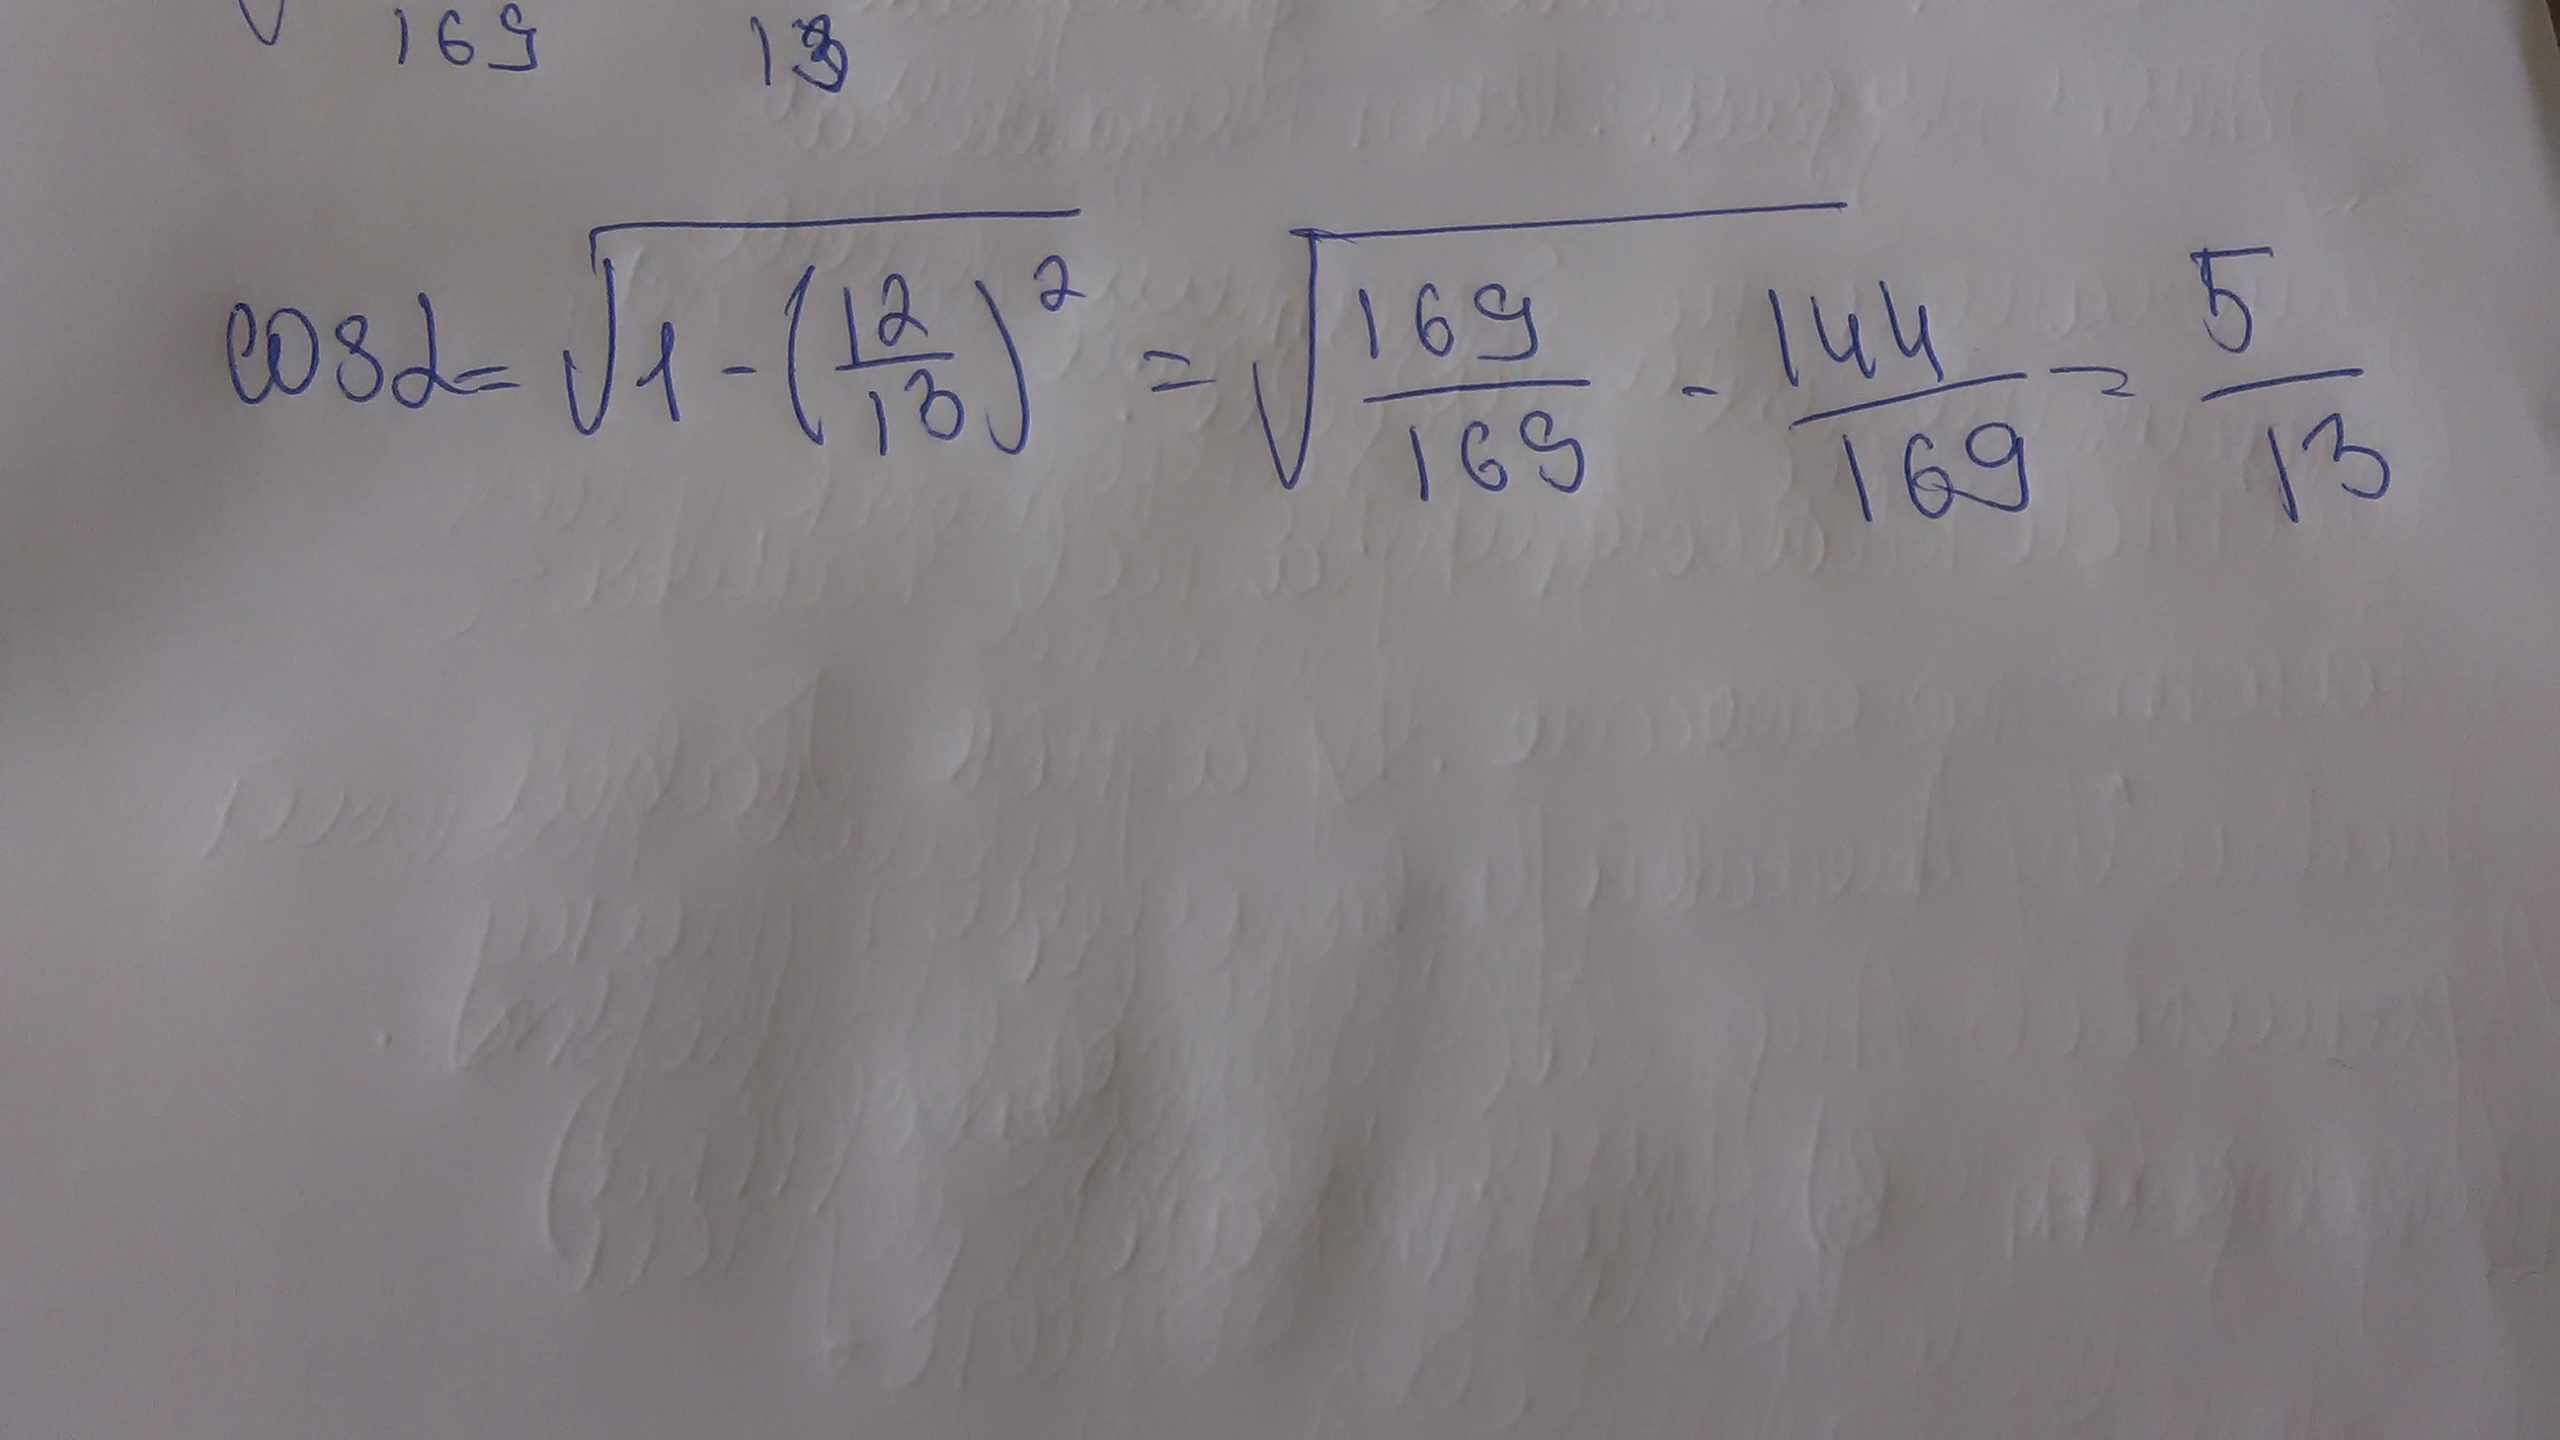 √ 169 13
cos α = √1 - (12/13)² = √169/169 - 144/169 = 5/13